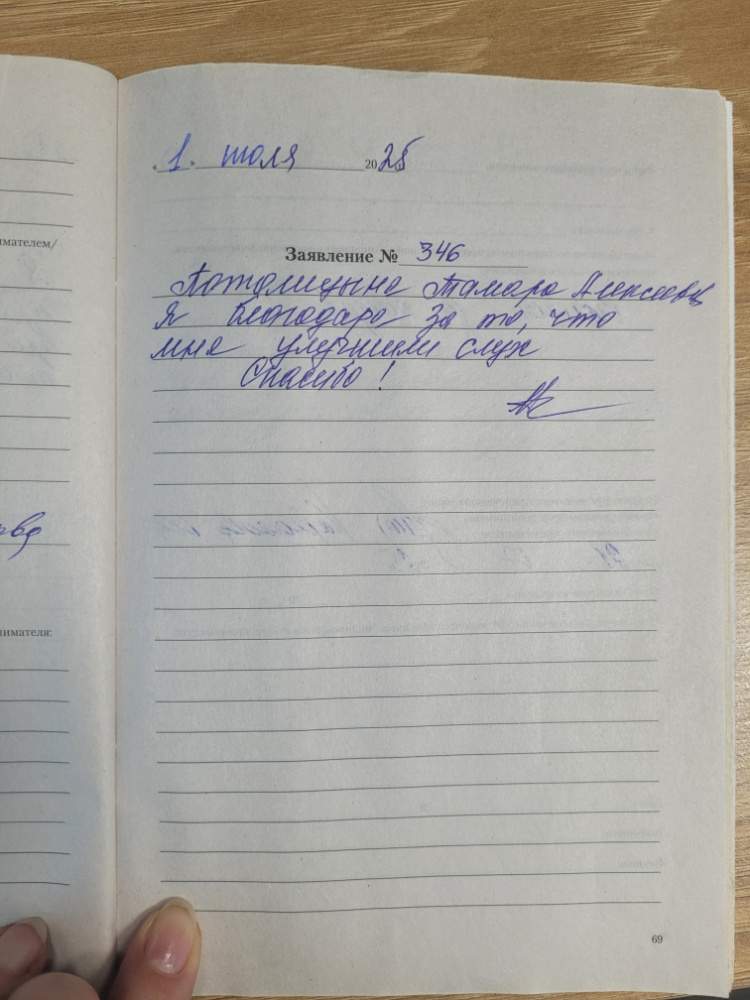 имателем/
нимателя:
" 1 " июля 2025
Заявление № 346
Потолицына Тамара Алексеевна
Я благодарю за то, что
мне улучшили слух
Спасибо!
69